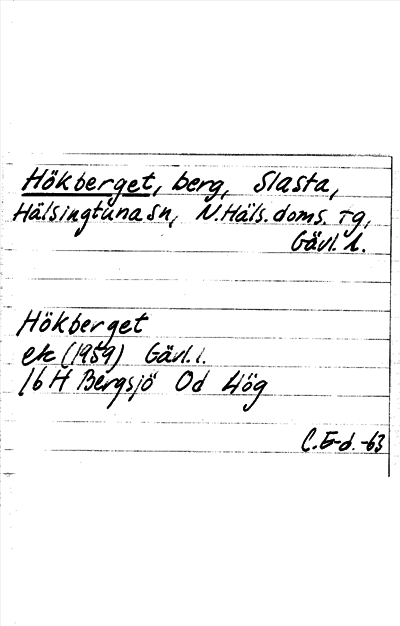 Hökberget, berg, Slasta,
Hälsingtuna sn, N.Häls.doms. tg,
Gävl. l.
Hökberget
ek (1959) Gävl. l.
16 H Bergsjö Od Hög
C.E-d.-63